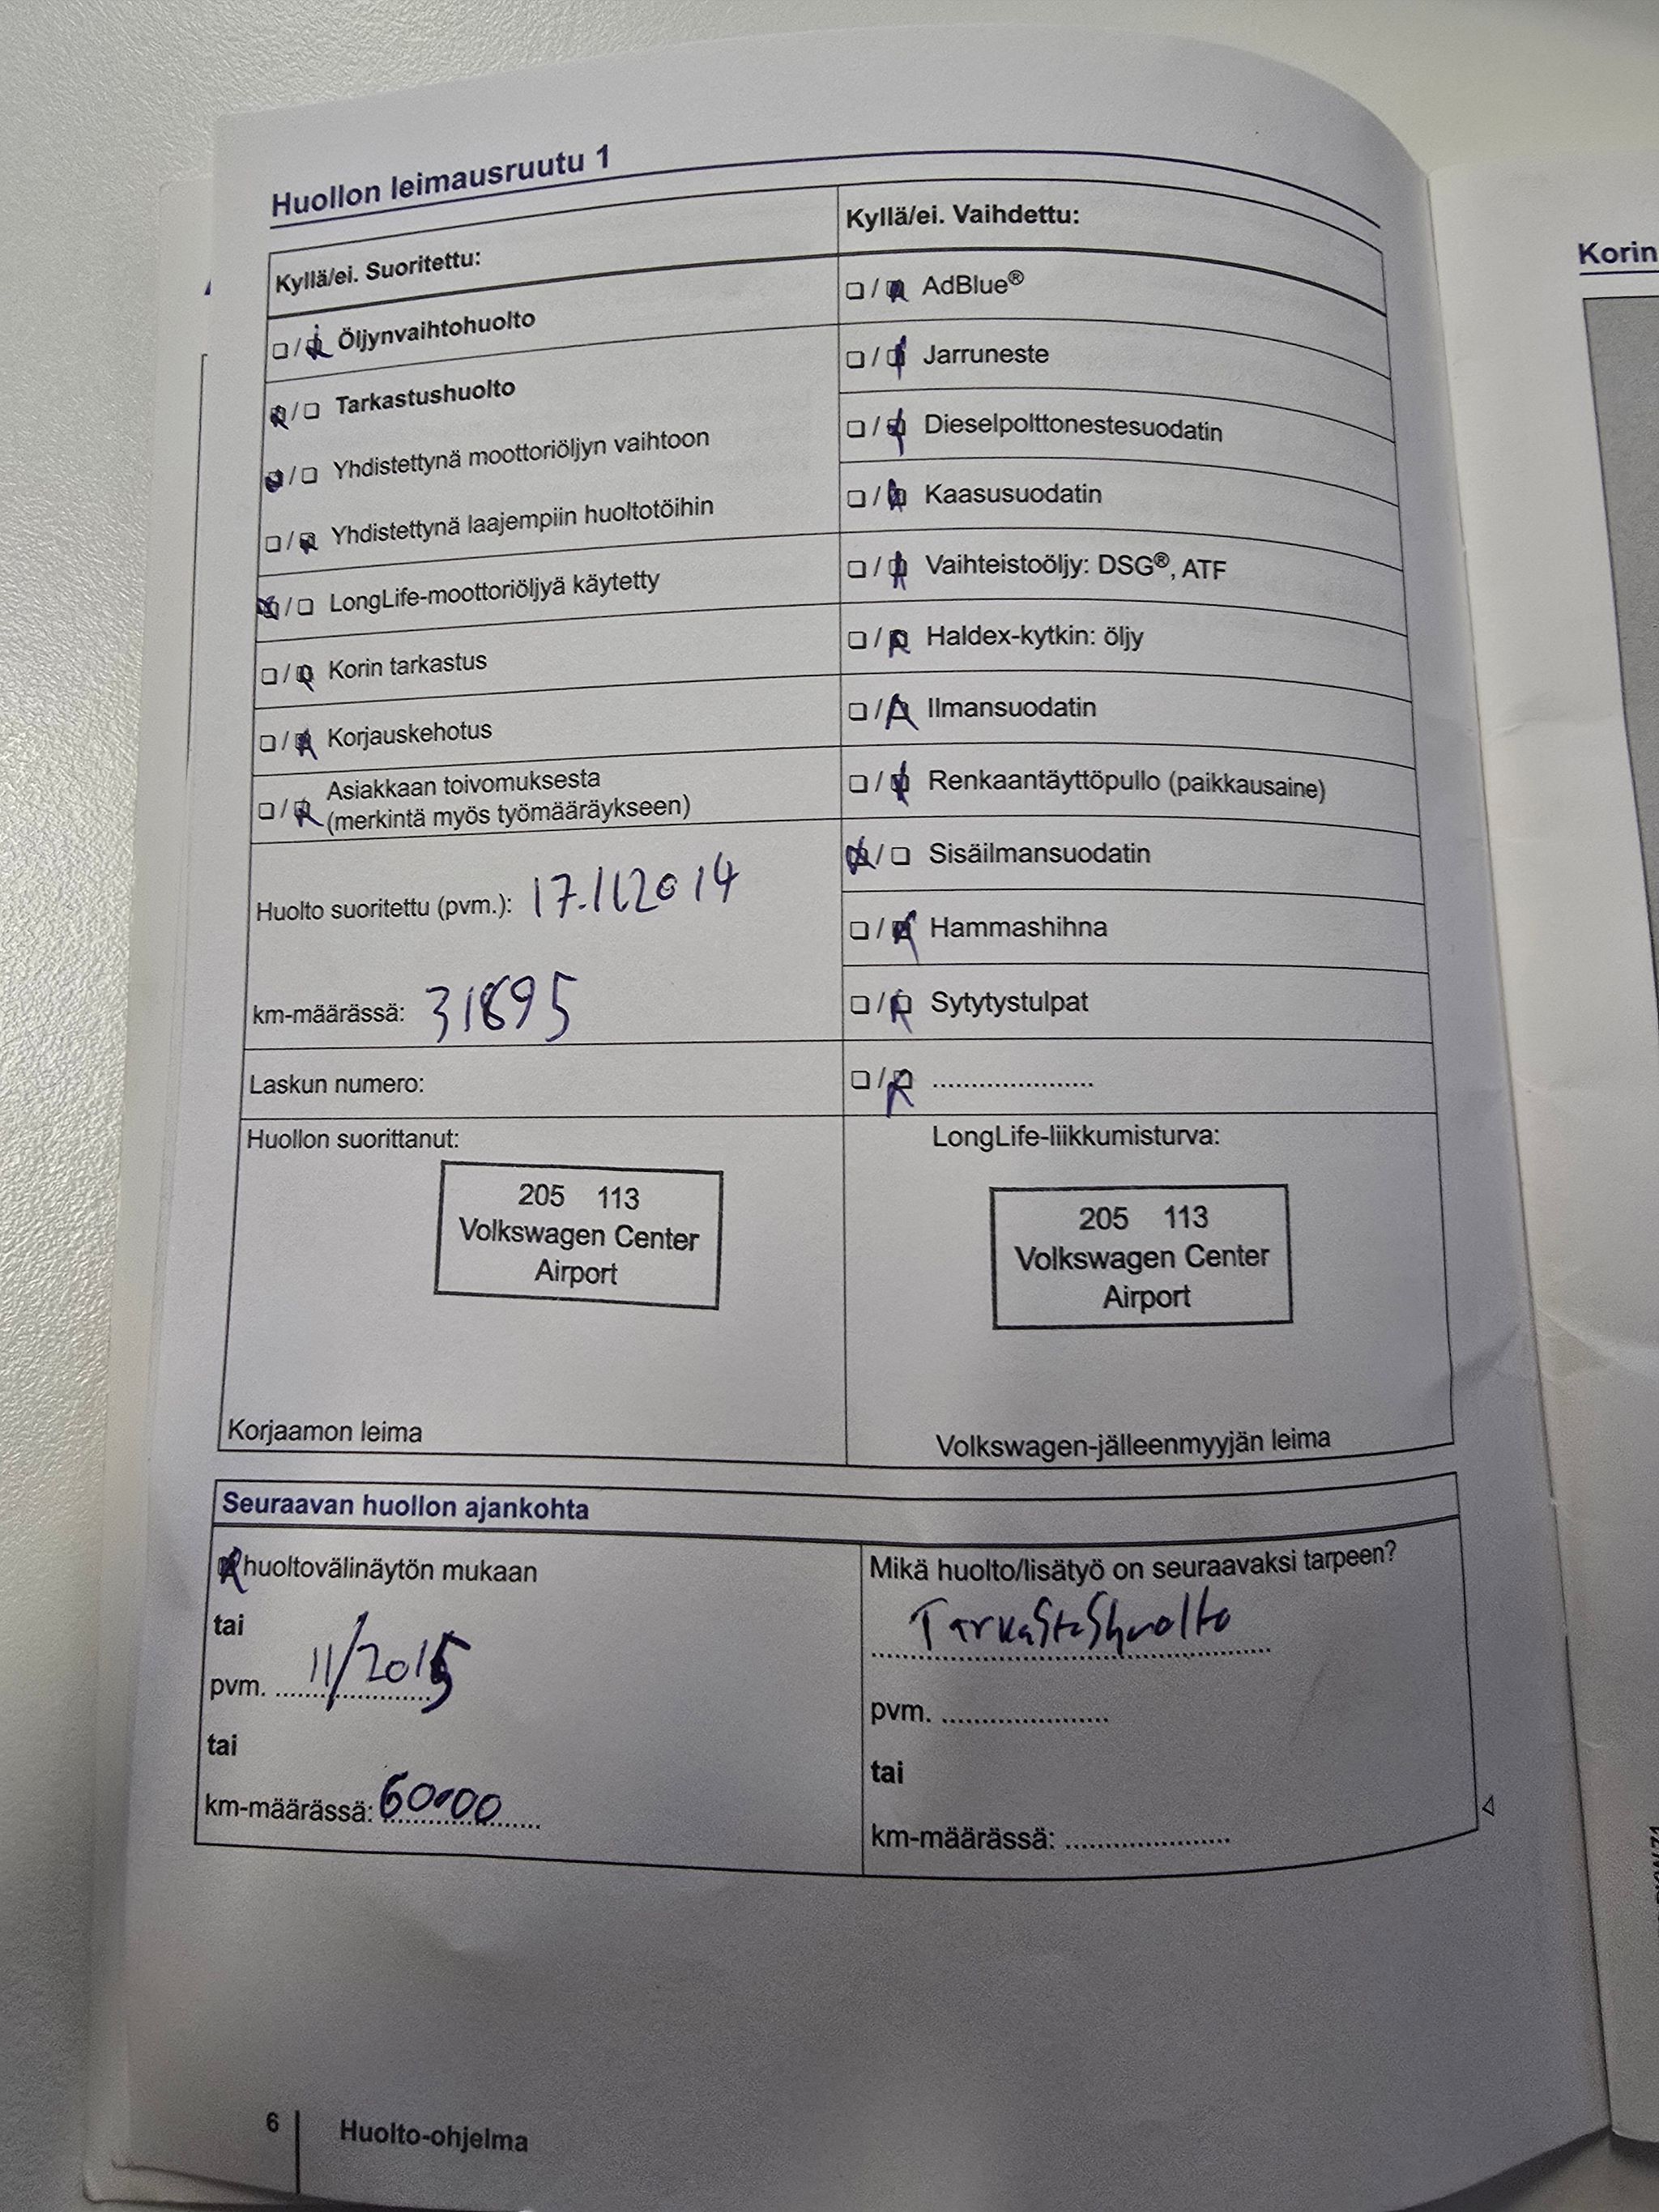 Huollon leimausruutu 1
Kyllä/ei. Suoritettu:
❏ / ❏ Öljynvaihtohuolto
❏ / ❏ Tarkastushuolto
❏ / ❏ Yhdistettynä moottoriöljyn vaihtoon
❏ / ❏ Yhdistettynä laajempiin huoltotöihin
❏ / ❏ LongLife-moottoriöljyä käytetty
❏ / ❏ Korin tarkastus
❏ / ❏ Korjauskehotus
❏ / ❏ Asiakkaan toivomuksesta
(merkintä myös työmääräykseen)
Huolto suoritettu (pvm.): 17.11.2014
km-määrässä: 31895
Laskun numero:
Huollon suorittanut:
205 113
Volkswagen Center
Airport
Korjaamon leima
Kyllä/ei. Vaihdettu:
❏ / ❏ AdBlue®
❏ / ❏ Jarruneste
❏ / ❏ Dieselpolttonestesuodatin
❏ / ❏ Kaasusuodatin
❏ / ❏ Vaihteistoöljy: DSG®, ATF
❏ / ❏ Haldex-kytkin: öljy
❏ / ❏ Ilmansuodatin
❏ / ❏ Renkaantäyttöpullo (paikkausaine)
❏ / ❏ Sisäilmansuodatin
❏ / ❏ Hammashihna
❏ / ❏ Sytytystulpat
❏ / ❏ ......................
LongLife-liikkumisturva:
205 113
Volkswagen Center
Airport
Volkswagen-jälleenmyyjän leima
Seuraavan huollon ajankohta
❏ huoltovälinäytön mukaan
tai
pvm. 11/2015
tai
km-määrässä: 60000
Mikä huolto/lisätyö on seuraavaksi tarpeen?
Tarkastushuolto
pvm. ......................
tai
km-määrässä: ......................
6
Huolto-ohjelma
Korin